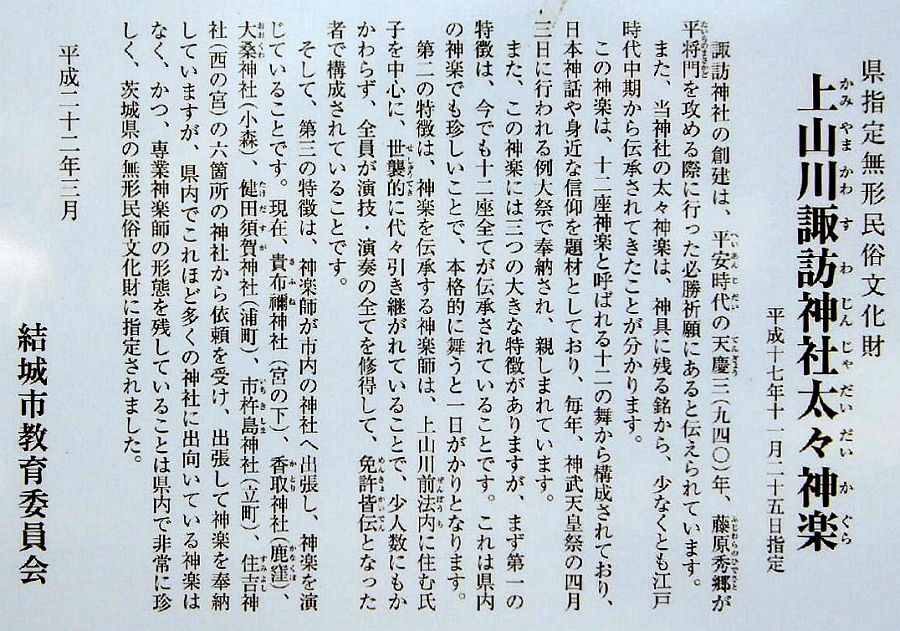 県指定無形民俗文化財
上山川諏訪神社太々神楽
かみやまかわすわじんじゃだいだいかぐら
平成十七年十一月二十五日指定
諏訪神社の創建は、平安時代の天慶三(九四〇)年、藤原秀郷が
平将門を攻める際に行った必勝祈願にあると伝えられています。
また、当神社の太々神楽は、神具に残る銘から、少なくとも江戸
時代中期から伝承されてきたことが分かります。
この神楽は、十二座神楽と呼ばれる十二の舞から構成されており、
日本神話や身近な信仰を題材としており、毎年、神武天皇祭の四月
三日に行われる例大祭で奉納され、親しまれています。
また、この神楽には三つの大きな特徴がありますが、まず第一の
特徴は、今でも十二座全てが伝承されていることです。これは県内
の神楽でも珍しいことで、本格的に舞うと一日がかりとなります。
第二の特徴は、神楽を伝承する神楽師は、上山川前法内に住む氏
子を中心に、世襲的に代々引き継がれていることで、少人数にもか
かわらず、全員が演技・演奏の全てを修得して、免許皆伝となった
者で構成されていることです。
そして、第三の特徴は、神楽師が市内の神社へ出張し、神楽を演
じていることです。現在、貴布禰神社(宮の下)、香取神社(鹿窪)、
大桑神社(小森)、健田須賀神社(浦町)、市杵島神社(立町)、住吉神
社(西の宮)の六箇所の神社から依頼を受け、出張して神楽を奉納
していますが、県内でこれほど多くの神社に出向いている神楽は
なく、かつ、専業神楽師の形態を残していることは県内で非常に珍
しく、茨城県の無形民俗文化財に指定されました。
平成二十二年三月
結城市教育委員会